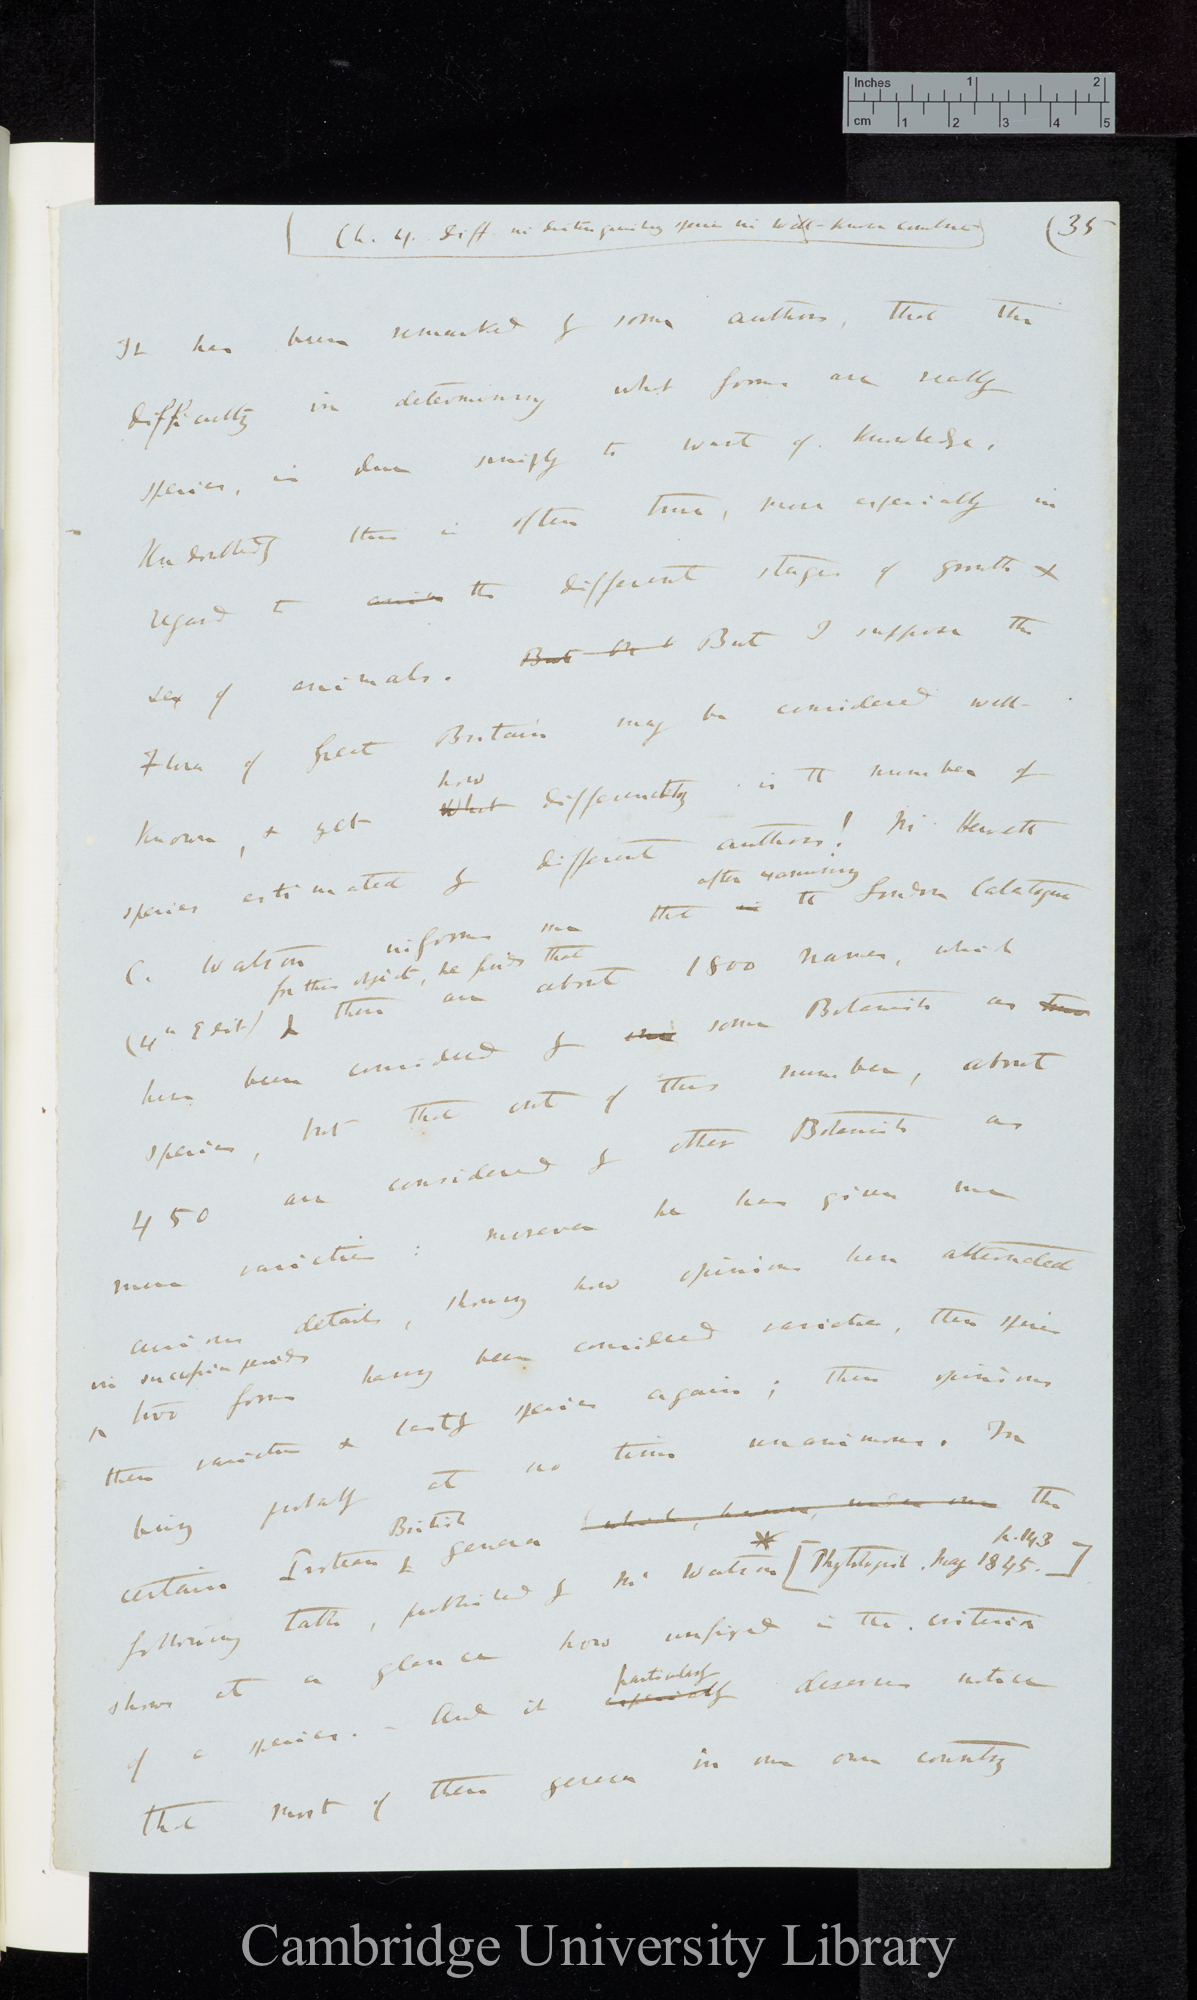 Inches 1 2
cm 1 2 3 4 5
Ch. 4. Diff in distinguishing species in well-known countries
(35
It has been remarked by some authors, that the
difficulty in determining what forms are really
species, is due simply to want of knowledge.
Undoubtedly this is often true, more especially in
regard to the different stages of growth &
sex of animals. But But I suppose the
Flora of Great Britain may be considered well-
how
known, & yet What differently is the number of
species estimated by different authors! Mr Hewett
after examining
C. Watson informs me that in the London Catalogue
for this object, he finds that
(4th Edit) there are about 1800 names, which
have been considered by some Botanists as
species, but that out of this number, about
450 are considered by other Botanists as
mere varieties: moreover he has given me
curious details, showing how opinions have alternated
in successive periods
^ two forms having been considered varieties, then species
then varieties & lastly species again; these opinions
being probably at no time unanimous. In
British
certain Protean genera which, however, under one the
* p. 143
following table, published by Mr Watson [Phytologist. May 1845.]
shows at a glance how unfixed is the criterion
particularly
of a species. – And it especially deserves notice
that most of these genera in our own country
Cambridge University Library